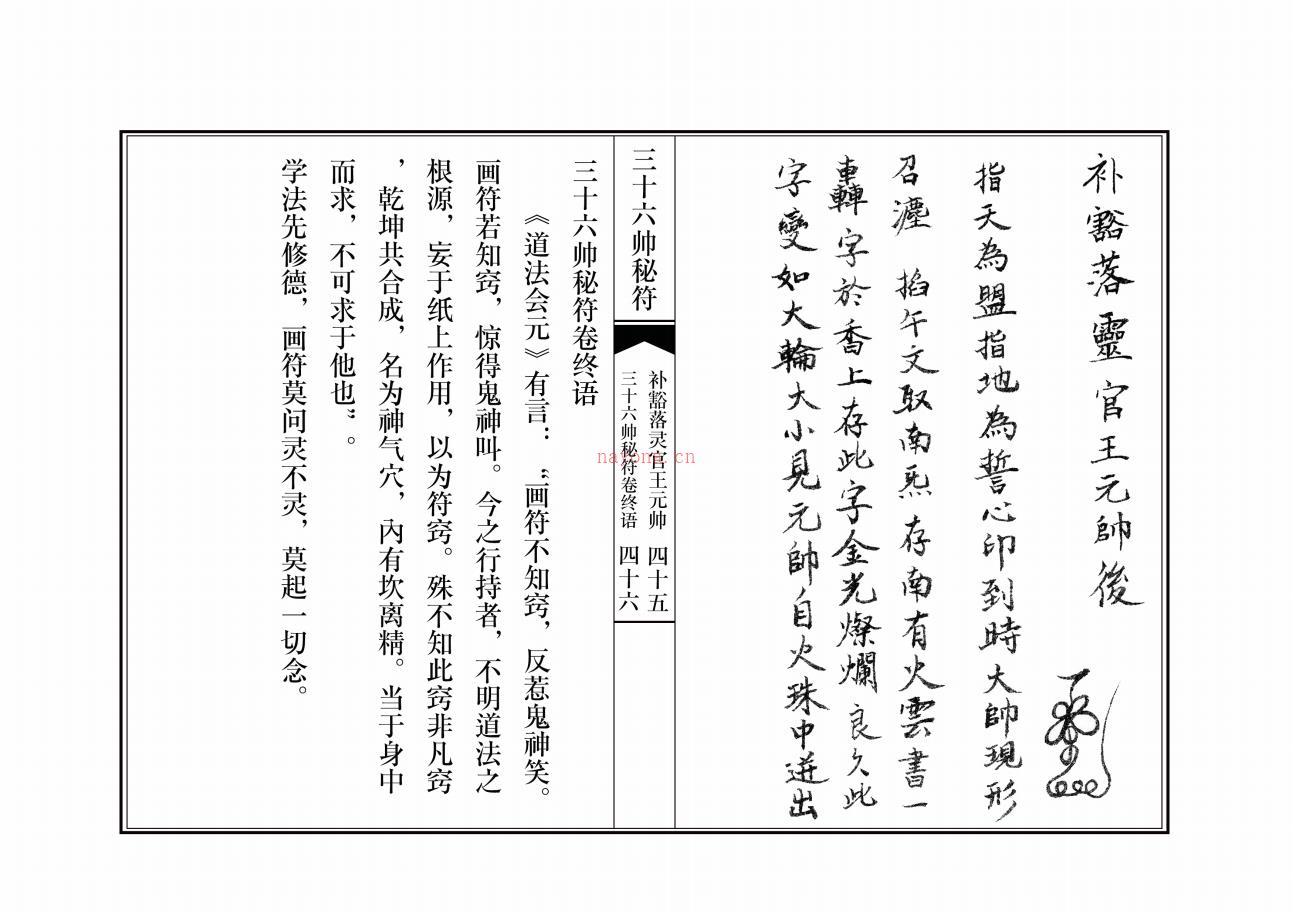 补豁落靈官王元帥後
指天為盟指地為誓心印到時大帥現形
召瀍 掐午文取南炁存南有火雲書一
轟字於香上存此字金光燦爛良久此
字變如大輪大小見元帥自火珠中迸出
三十六帅秘符
补豁落灵官王元帅 四十五
三十六帅秘符卷终语 四十六
三十六帅秘符卷终语
《道法会元》有言：“画符不知窍，反惹鬼神笑。
画符若知窍，惊得鬼神叫。今之行持者，不明道法之
根源，妄于纸上作用，以为符窍。殊不知此窍非凡窍
，乾坤共合成，名为神气穴，内有坎离精。当于身中
而求，不可求于他也”。
学法先修德，画符莫问灵不灵，莫起一切念。
nayona.cn